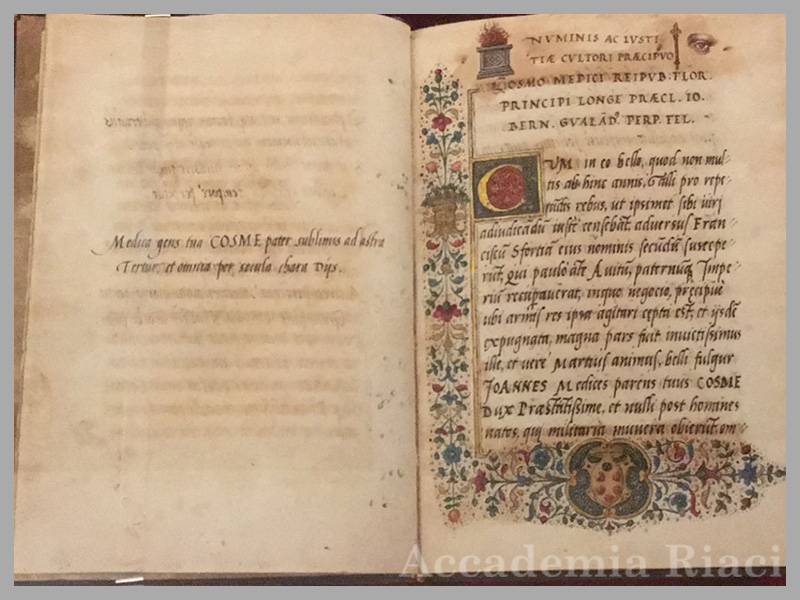 Medica gens tua COSME pater sublimis ad astra
Tertur, et omnia per secula chara Dijs.
NVMINIS AC IVSTI
TIÆ CVLTORI PRÆCIPVO
COSMO MEDICI REIPVB. FLOR.
PRINCIPI LONGE PRÆCL. IO.
BERN. GVALĀD9. PERP. FEL.
CVM in eo bello, quod non mul-
tis ab hinc annis, Galli pro repe-
rebus, ut ipsimet sibi uiri
adiudicādū iustè censebāt, aduersus Fran-
ciscū Sfortiā eius nominis secūdū suscepe-
rūt, qui paulo āte Auitū, paternūq; Impe-
riū recuperauerat, inquo negocio, præcipuè
ubi armis res ipsa agitari cepta est, et ijsdē
expugnata, magna pars fuit inuictissimus
ille, et uerè Martius animus, belli fulgur
JOANNES Medices parens tuus COSME
Dux Præstātissime, et nulli post homines
natos, qui militaria munera obierūt, om-
Accademia Riaci